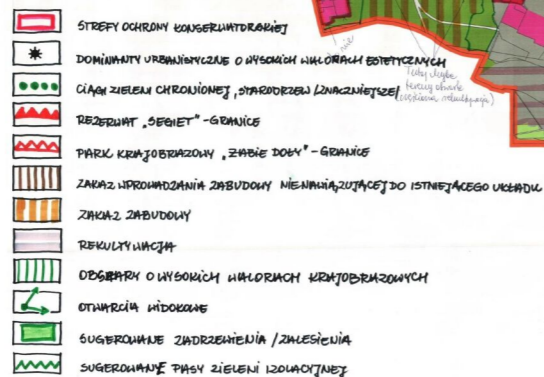 STREFY OCHRONY KONSERWATORSKIEJ
DOMINANTY URBANISTYCZNE O WYSOKICH WALORACH ESTETYCZNYCH
CIĄGI ZIELENI CHRONIONEJ, STARODRZEW (ZNACZNIEJSZE)
REZERWAT „SEGIET" - GRANICE
PARK KRAJOBRAZOWY „ŻABIE DOŁY" - GRANICE
ZAKAZ WPROWADZANIA ZABUDOWY NIENAWIĄZUJĄCEJ DO ISTNIEJĄCEGO UKŁADU
ZAKAZ ZABUDOWY
REKULTYWACJA
OBSZARY O WYSOKICH WALORACH KRAJOBRAZOWYCH
OTWARCIA WIDOKOWE
SUGEROWANE ZADRZEWIENIA / ZALESIENIA
SUGEROWANE PASY ZIELENI IZOLACYJNEJ